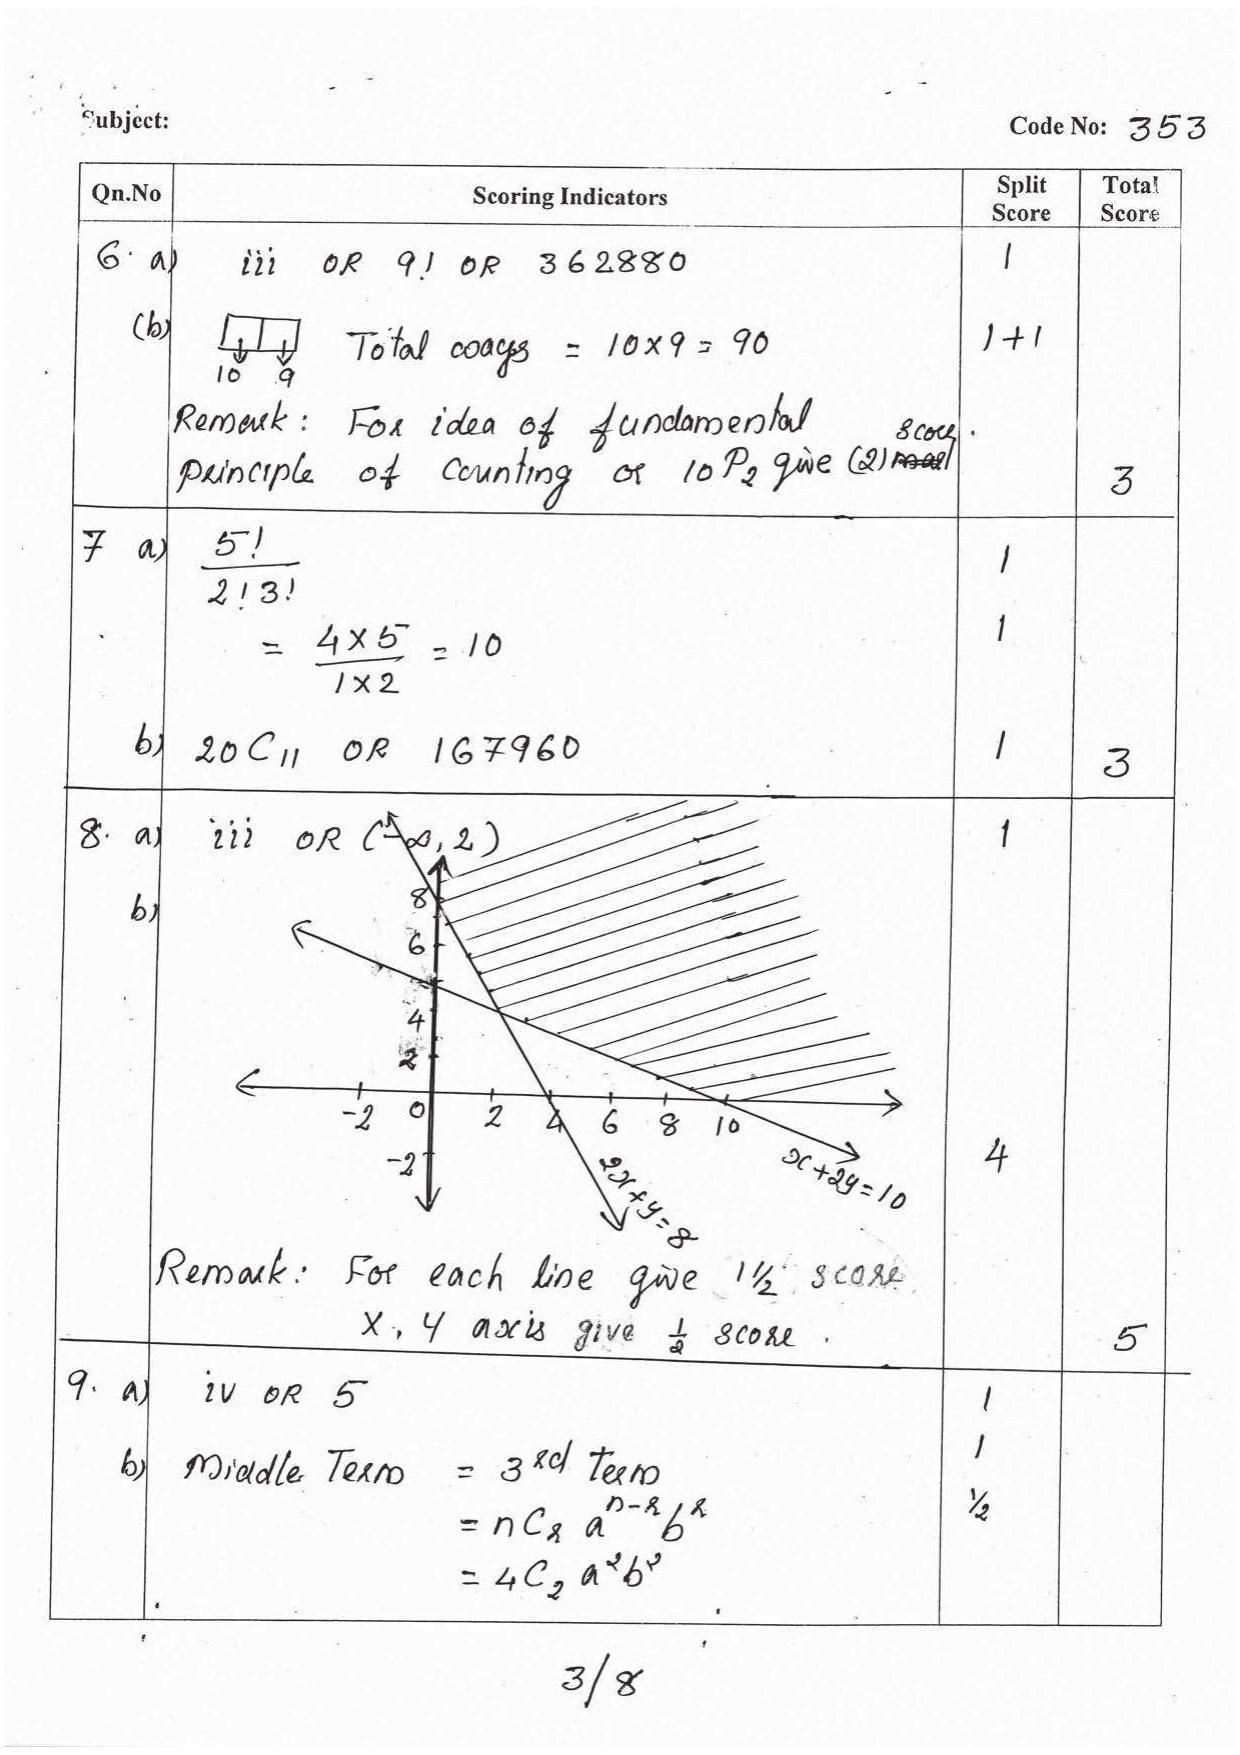 Subject:
Code No: 353
Qn.No Scoring Indicators Split Score Total Score
6. a) iii OR 9! OR 362880 1
(b) Total ways = 10×9 = 90 1+1
10 9
Remark: For idea of fundamental
principle of counting or 10P2 give (2) score. 3
7 a) 5!/2!3! 1
= 4×5/1×2 = 10 1
b) 20C11 OR 167960 1 3
8. a) iii OR (-∞, 2) 1
b) 8
6
4
2
-2 0 2 4 6 8 10
-2
2x+y=8
x+2y=10
4
Remark: For each line give 1½ score
X, Y axis give ½ score. 5
9. a) iv OR 5 1
b) Middle Term = 3rd term 1
= nCr a^n-r b^r ½
= 4C2 a²b²
3/8